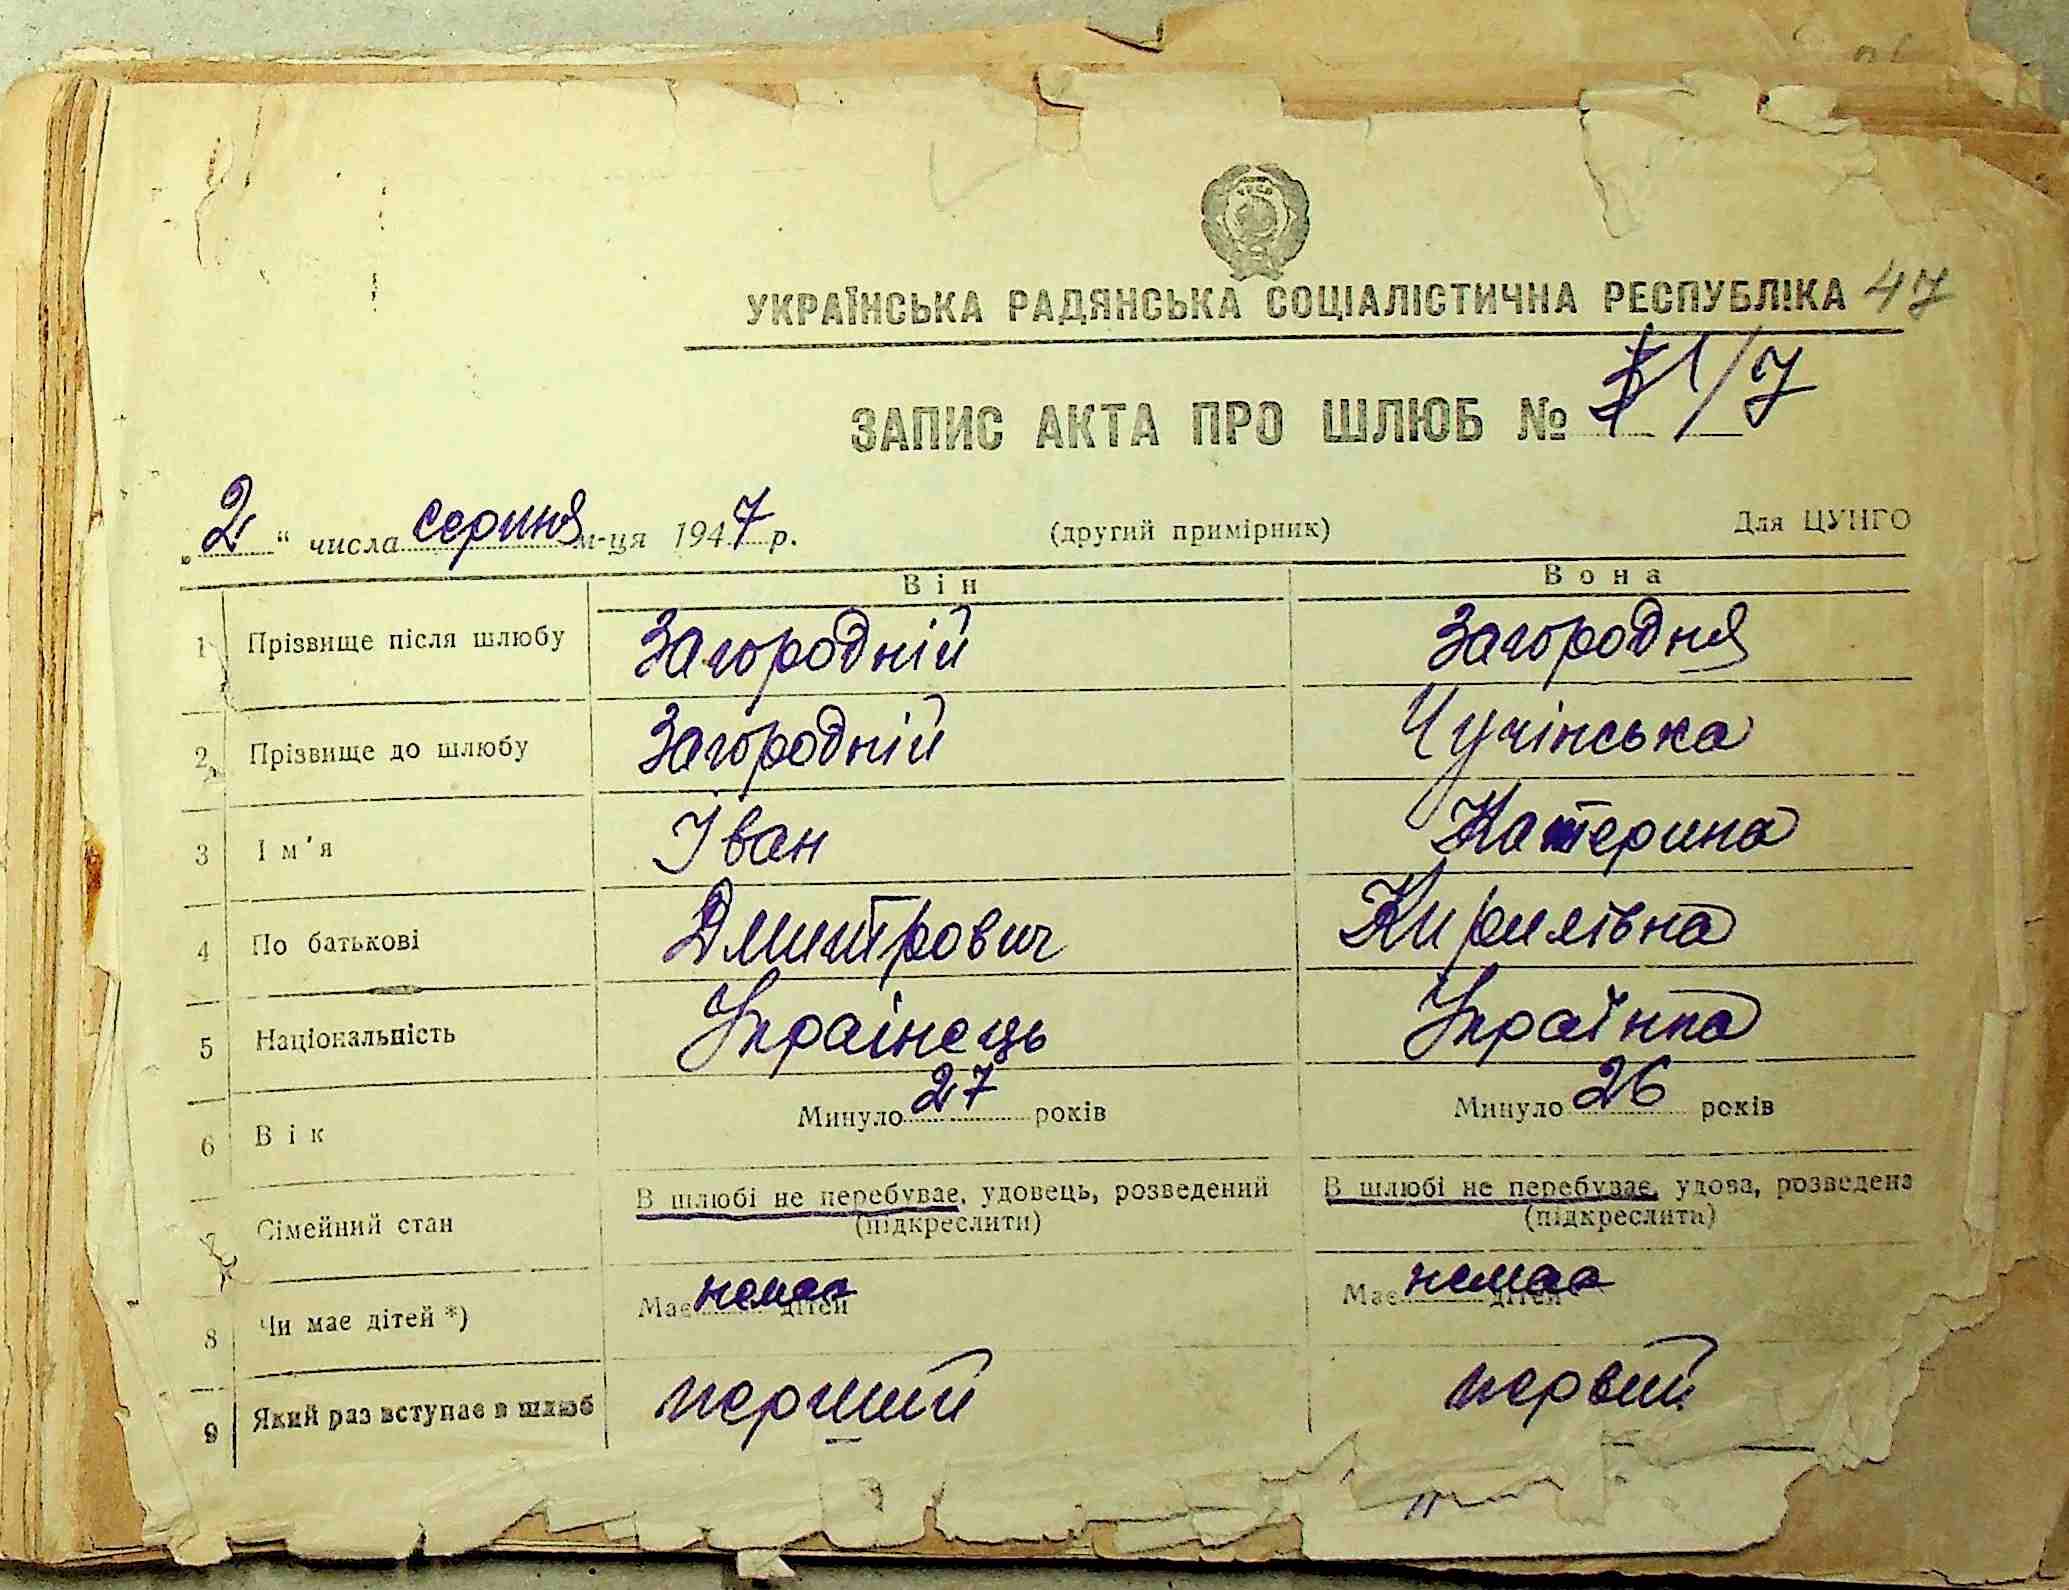 УРСР
УКРАЇНСЬКА РАДЯНСЬКА СОЦІАЛІСТИЧНА РЕСПУБЛІКА 47
ЗАПИС АКТА ПРО ШЛЮБ № 1/7
„2“ числа серпня м-ця 1947 р. (другий примірник) Для ЦУНГО
Він Вона
1 Прізвище після шлюбу Загородній Загородня
2 Прізвище до шлюбу Загородній Чучінська
3 Ім'я Іван Катерина
4 По батькові Дмитрович Кирилівна
5 Національність Украінець Українка
6 Вік Минуло 27 років Минуло 26 років
7 Сімейний стан В шлюбі не перебуває, удовець, розведений В шлюбі не перебуває, удова, розведена
(підкреслити) (підкреслити)
8 Чи має дітей *) Має немає дітей Має немає дітей
9 Який раз вступає в шлюб перший первий